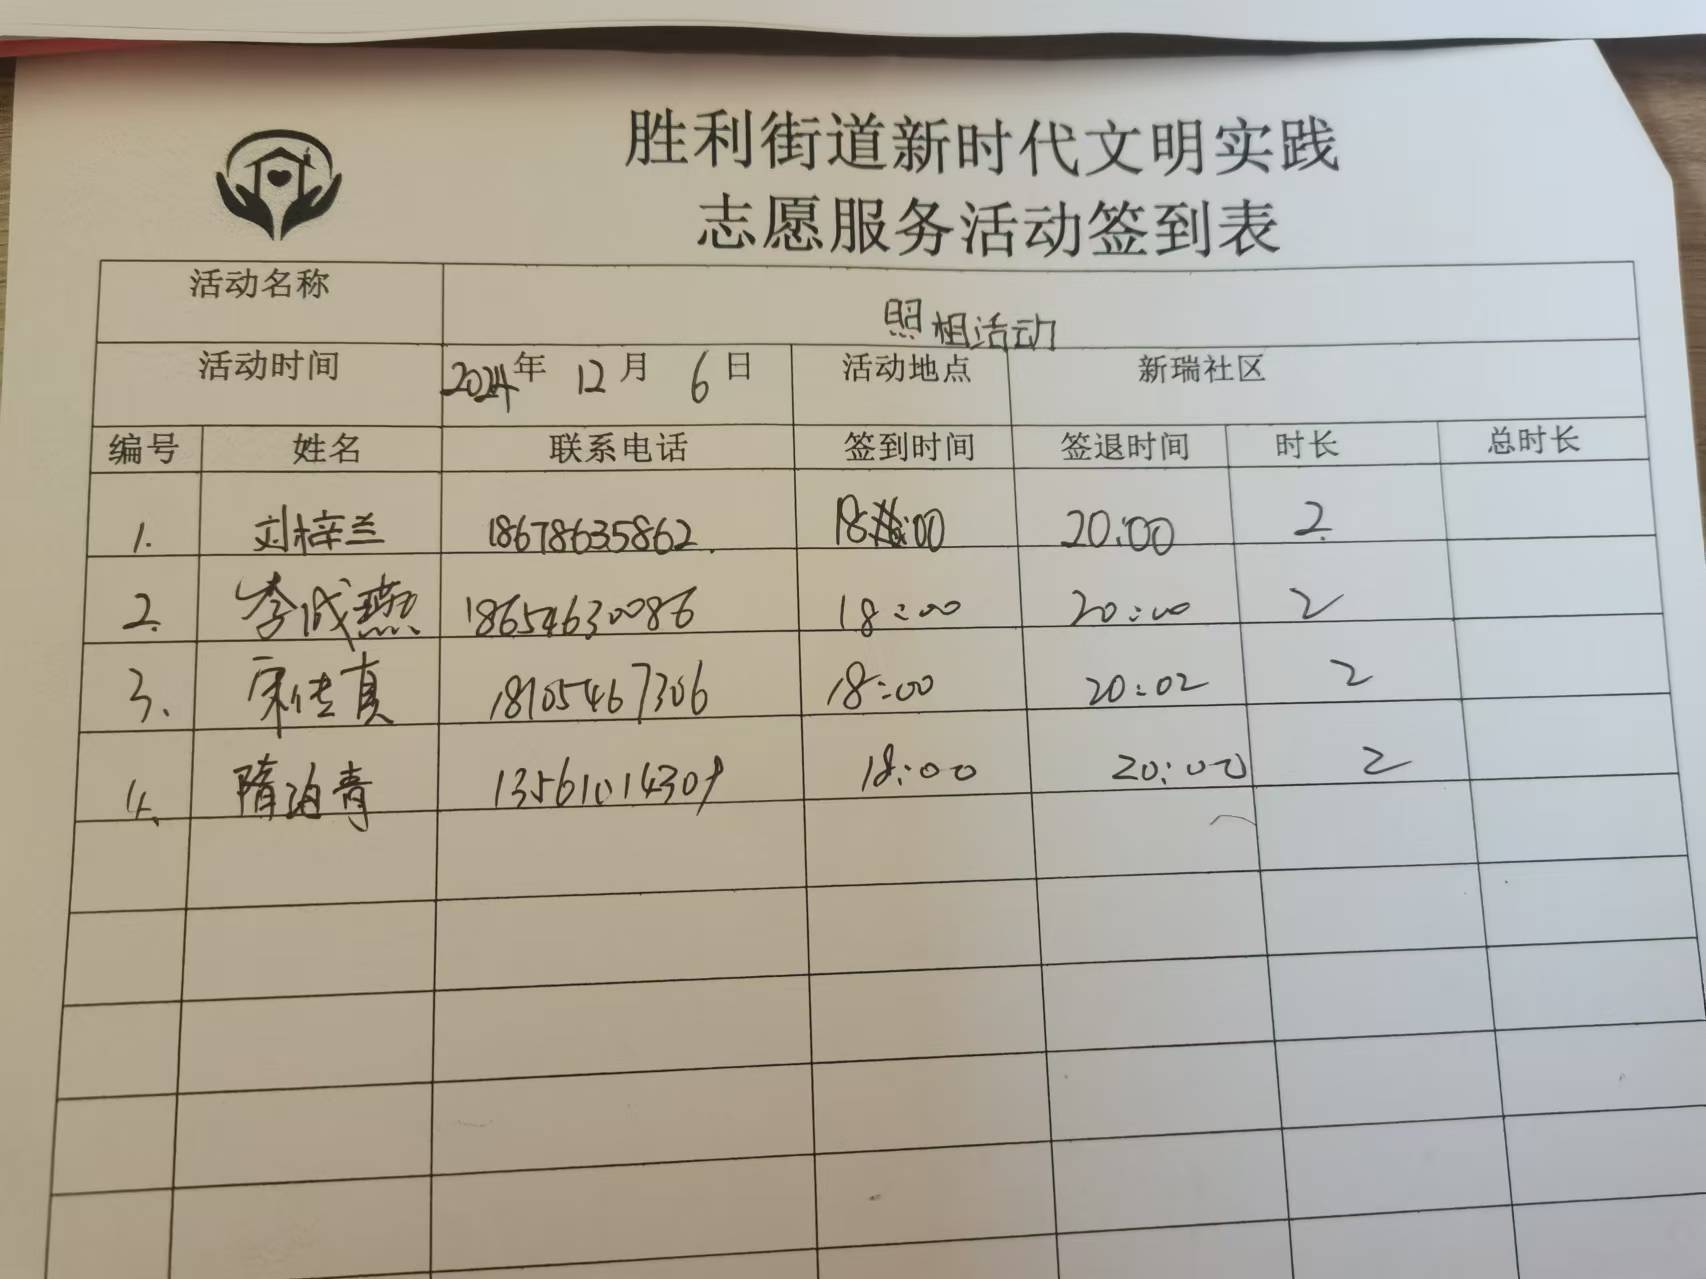 胜利街道新时代文明实践
志愿服务活动签到表
活动名称 照相活动
活动时间 2024年 12月 6日 活动地点 新瑞社区
编号 姓名 联系电话 签到时间 签退时间 时长 总时长
1. 刘梓兰 18678635862. 18:00 20:00 2
2. 李成燕 18654630086 18:00 20:00 2
3. 宋传真 18105467306 18:00 20:02 2
4. 隋泊青 13561014309 18:00 20:00 2